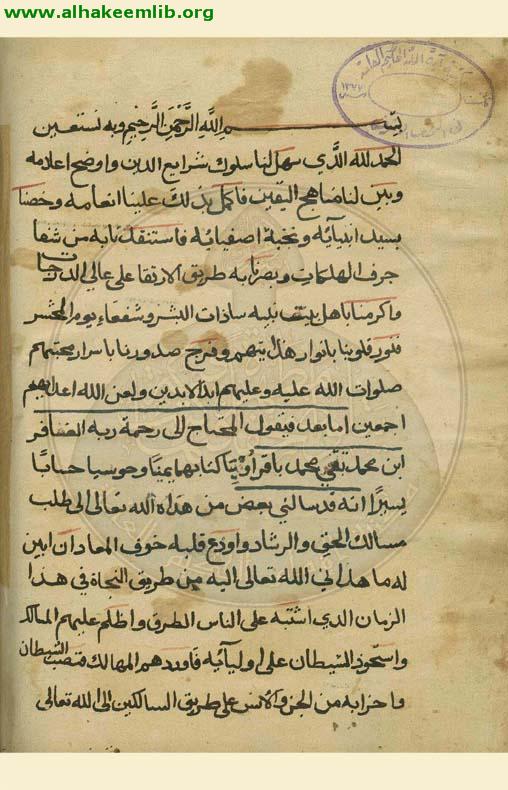 www.alhakeemlib.org
بسم الله الرحمن الرحيم وبه نستعين
الحمد لله الذي سهل لنا سلوك شرايع الدين واوضح اعلامه
وبين لنا مناهج اليقين فاكمل بذلك علينا انعامه وخصنا
بسيد انبيائه ونخبة اصفيائه فاستنقذنا به من شفا
جرف الهلكات وبصرنا به طريق الارتقا على عالي الدرجات
واكرمنا باهل بيت نبيه سادات البشر وشفعاء يوم المحشر
فنور قلوبنا بانوار هدايتهم وفرح صدورنا باسرار محبتهم
صلوات الله عليه وعليهم ابد الابدين ولعن الله اعدائهم
اجمعين اما بعد فيقول المحتاج الى رحمة ربه الغافر
ابن محمد تقي محمد باقر اوتيا كتابهما يمينا وحوسبا حسابا
يسيرا انه قد سالني بعض من هداه الله تعالى الى طلب
مسالك الحق والرشاد واودع قلبه خوف المعاد ان ابين
له ما هداني الله تعالى اليه من طريق النجاة في هذا
الزمان الذي اشتبه على الناس الطرق واظلم عليهم المسالك
واستحوذ الشيطان على اوليائه فاوردهم المهالك فنصب الشيطان
واحزابه من الجن والانس على طريق السالكين الى الله تعالى